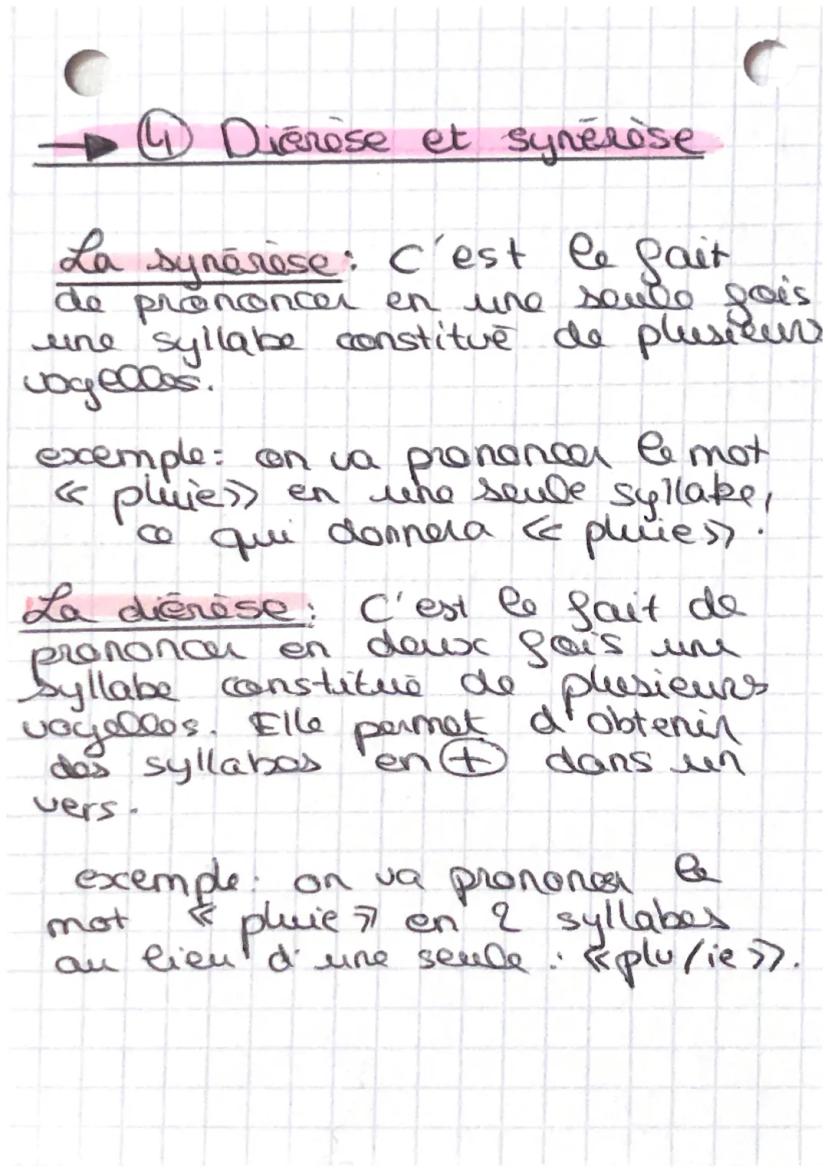 → ④ Diérèse et synérèse
La synérèse : C'est le fait
de prononcer en une seule fois
une syllabe constitué de plusieurs
voyelles.
exemple : on va prononcer le mot
« pluie » en une seule syllabe,
ce qui donnera « pluie ».
La diérèse : C'est le fait de
prononcer en deux fois une
syllabe constitué de plusieurs
voyelles. Elle permet d'obtenir
des syllabes en ⊕ dans un
vers.
exemple : on va prononcer le
mot « pluie » en 2 syllabes
au lieu d'une seule : « plu/ie ».